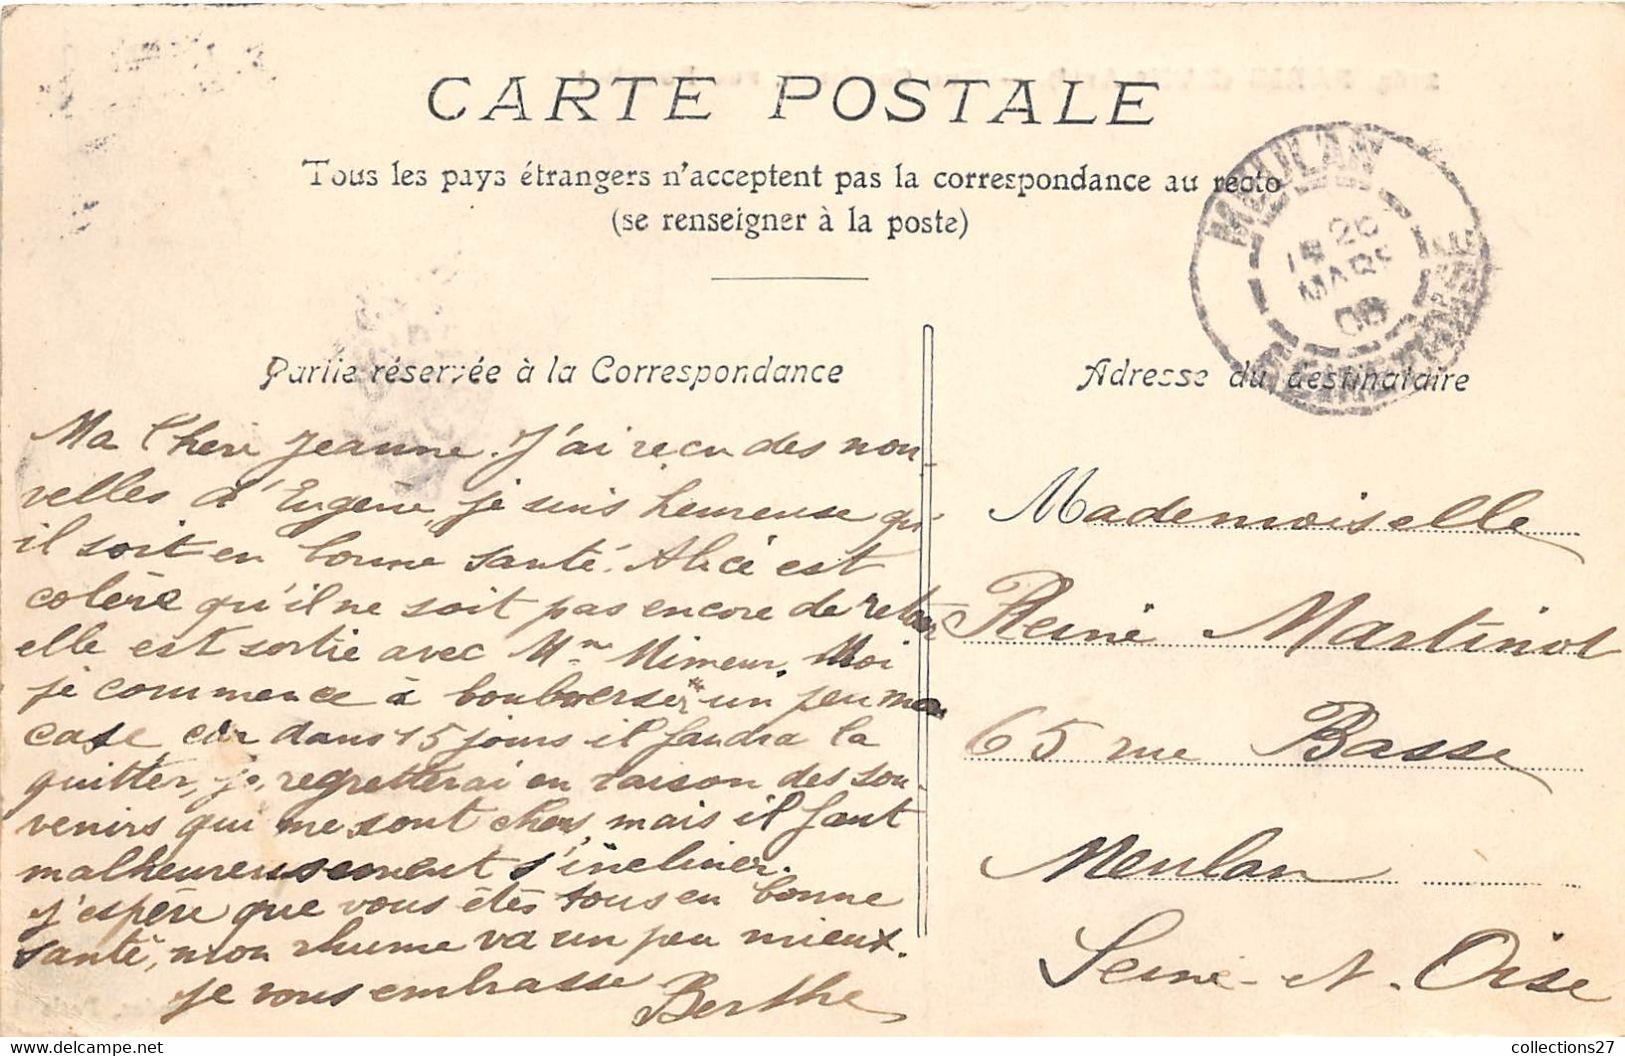 CARTE POSTALE
Tous les pays étrangers n'acceptent pas la correspondance au recto
(se renseigner à la poste)
MEULAN
26
MARS
06
SEINE-ET-OISE
Partie réservée à la Correspondance
Adresse du destinataire
Ma Cheri Jeanne. J'ai reçu des nou-
velles d'Eugène, je suis heureuse qu'
il soit en bonne santé. Alice est
colère qu'il ne soit pas encore de retour
elle est sortie avec Mme Mimeur. Moi
je commence à boulverser un peu ma
case car dans 15 jours il faudra la
quitter, je regretterai en raison des sou-
venirs qui me sont chers, mais il faut
malheureusement s'incliner.
j'espère que vous êtes tous en bonne
santé, mon rhume va un peu mieux.
Je vous embrasse
Berthe
Mademoiselle
Reine Martinot
65 rue Basse
Meulan
Seine-et-Oise
collections27